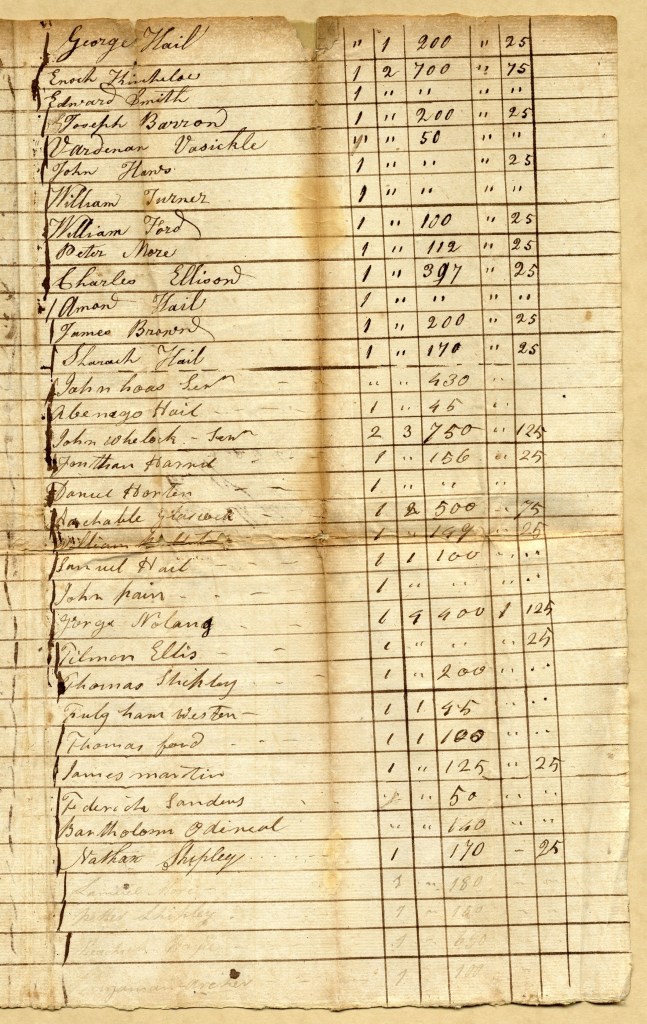 George Hail " 1 200 " 25
Enoch Kincheloe 1 2 700 " 75
Edward Smith 1 " " " "
Joseph Barron 1 " 200 " 25
Vardenan Vasickle " " 50 " "
John Haws 1 " " " 25
William Turner 1 " " " "
William Ford 1 " 100 " 25
Peter More 1 " 112 " 25
Charles Ellison 1 " 397 " 25
Amon Hail 1 " " " "
James Brown 1 " 200 " 25
Sharach Hail 1 " 170 " 25
John hoas Senr " " 430 "
Abenego Hail 1 " 45 "
John Whelock Senr 2 3 750 " 125
Jonthan 1 " 156 " 25
Daniel Horten 1 " " "
Glascock 1 2 500 " 75
William 1 " 149 " 25
Samuel Hail 1 1 100 " "
John pain 1 " " " "
Jorge Noland 1 4 400 1 125
Tilmon Ellis 1 " " " 25
Thomas Shipley " " 200 " "
Fulgham Westen 1 1 45 " "
Thomas ford 1 1 100 " "
James martin 1 " 125 " 25
Federick Sanders " " 50 " "
Bartholom Odineal " " 140 " "
Nathan Shipley 1 170 - 25
180
peter Shipley 1 "
1
archer 1